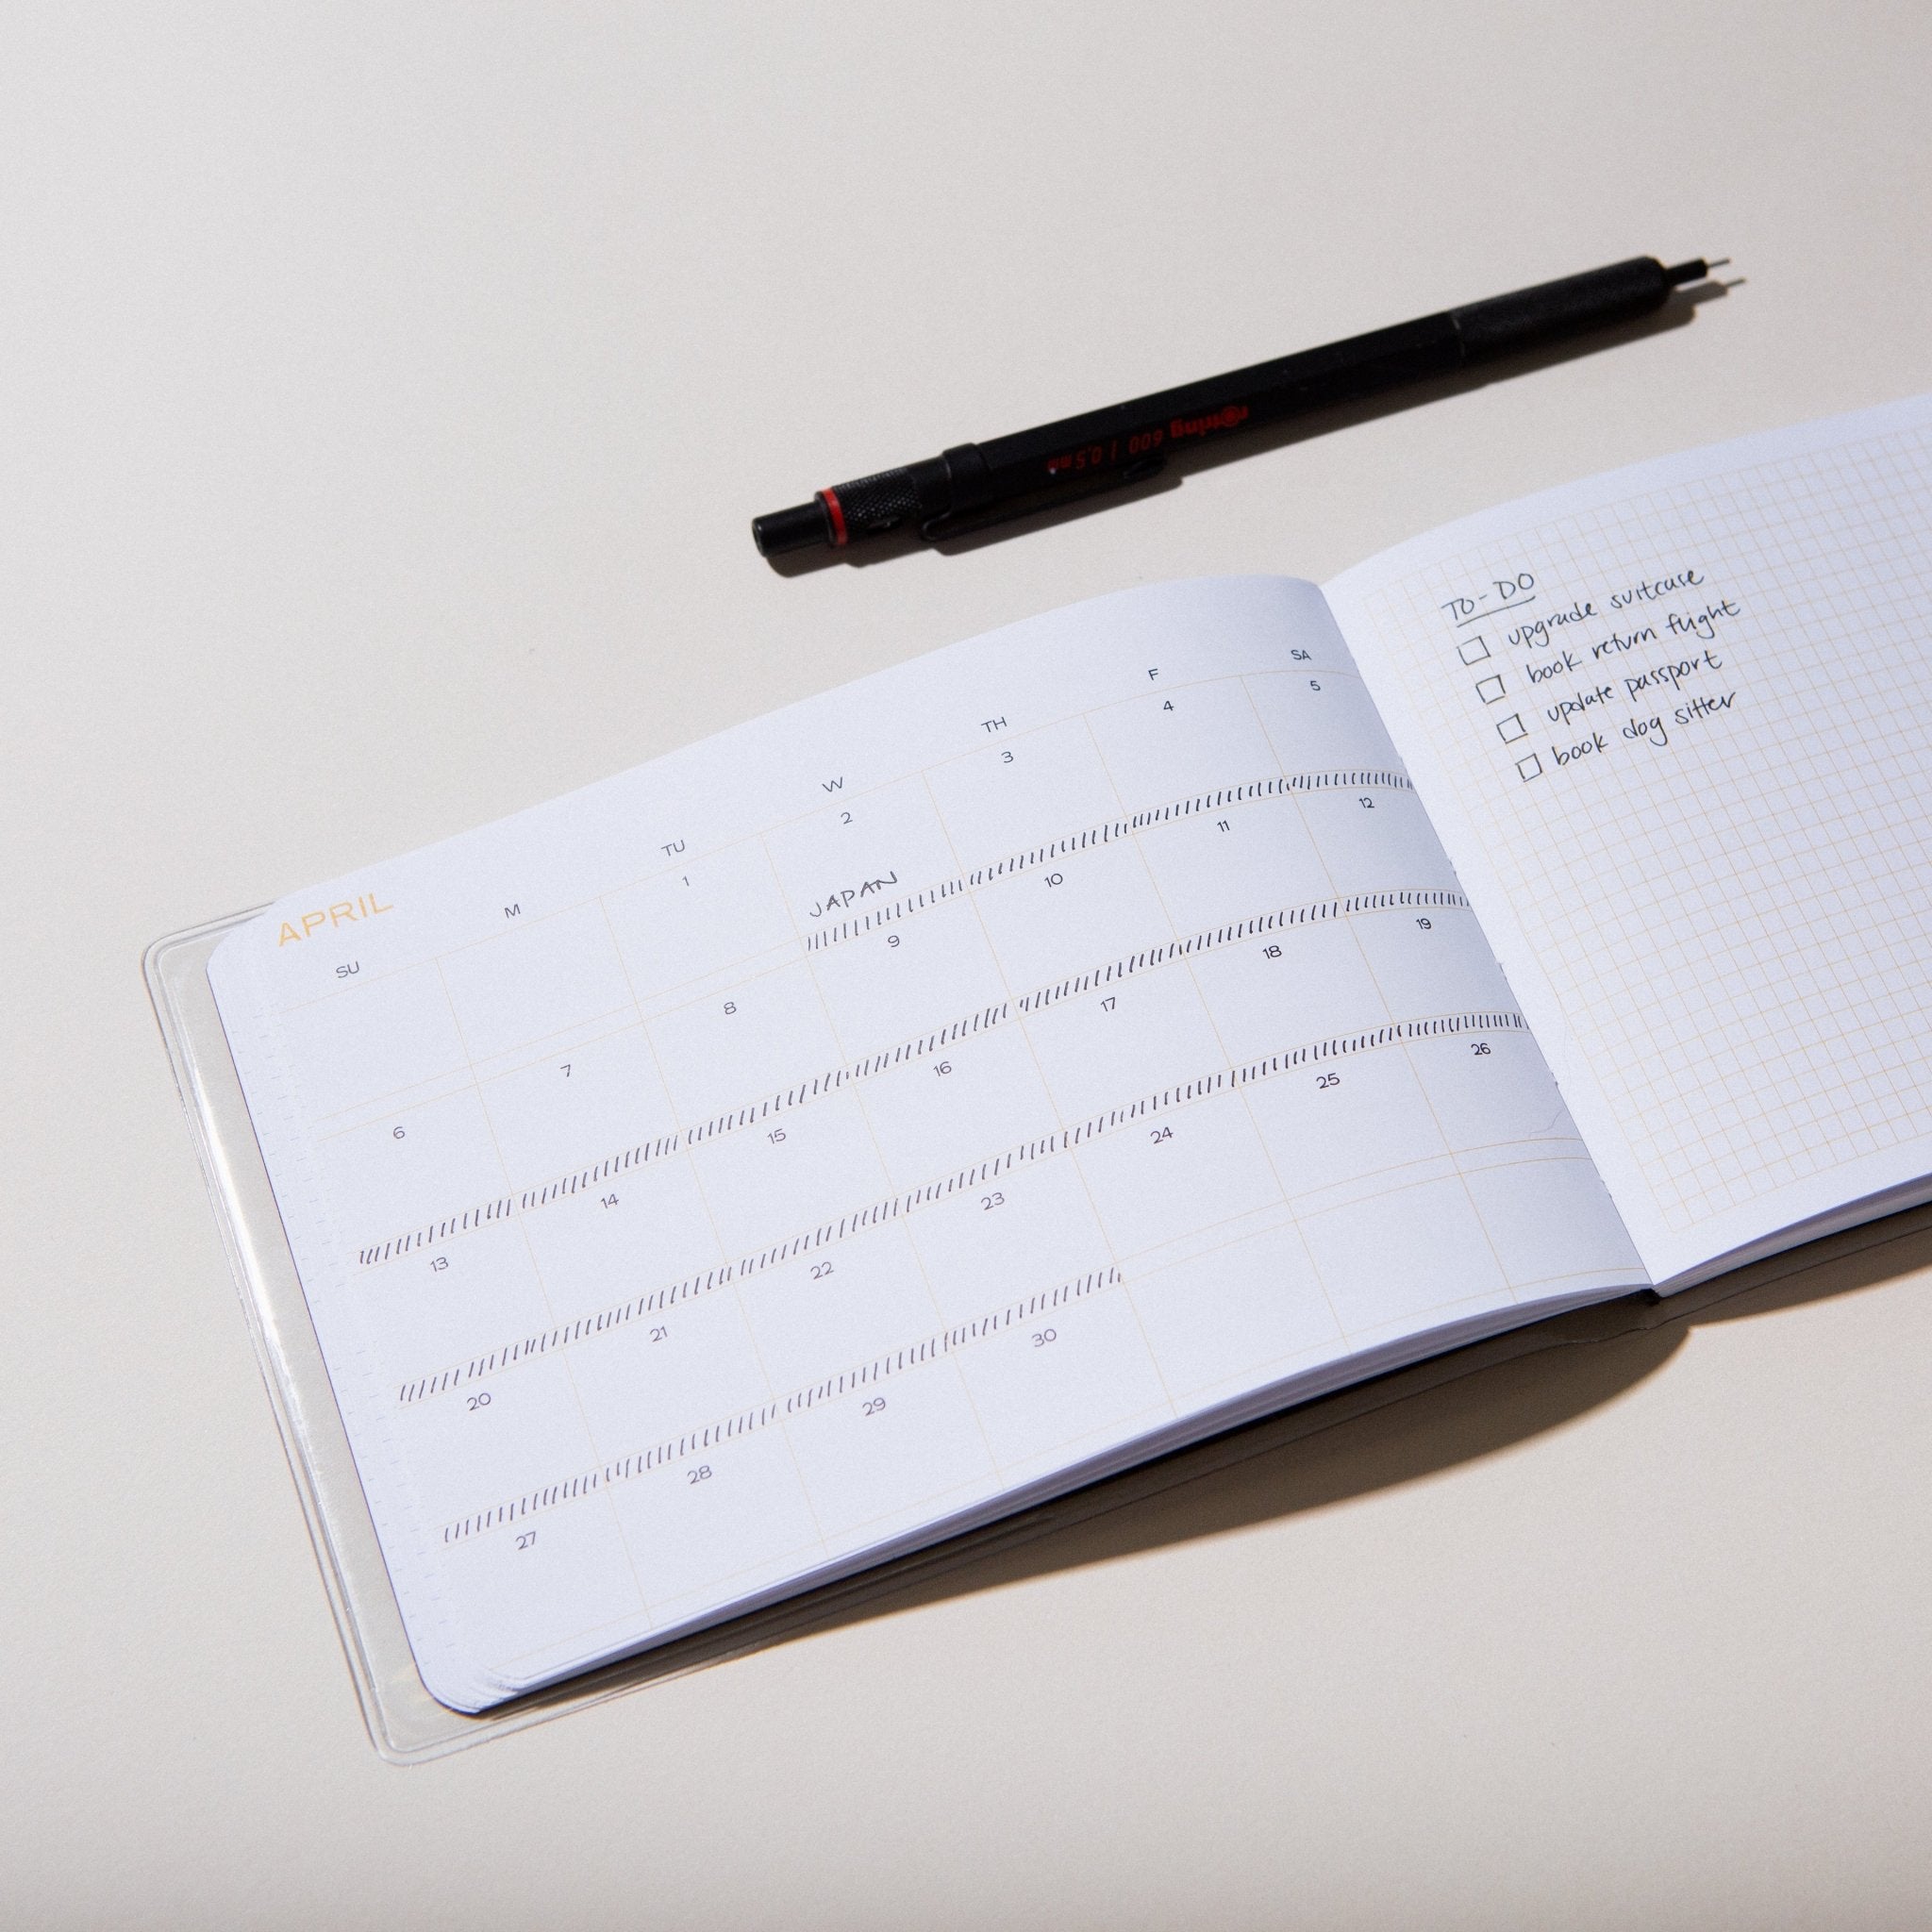 rotring 600 | 0,5 mm
APRIL
SU M TU W TH F SA
1 2 3 4 5
JAPAN
6 7 8 9 10 11 12
13 14 15 16 17 18 19
20 21 22 23 24 25 26
27 28 29 30
TO-DO
upgrade suitcase
book return flight
update passport
book dog sitter